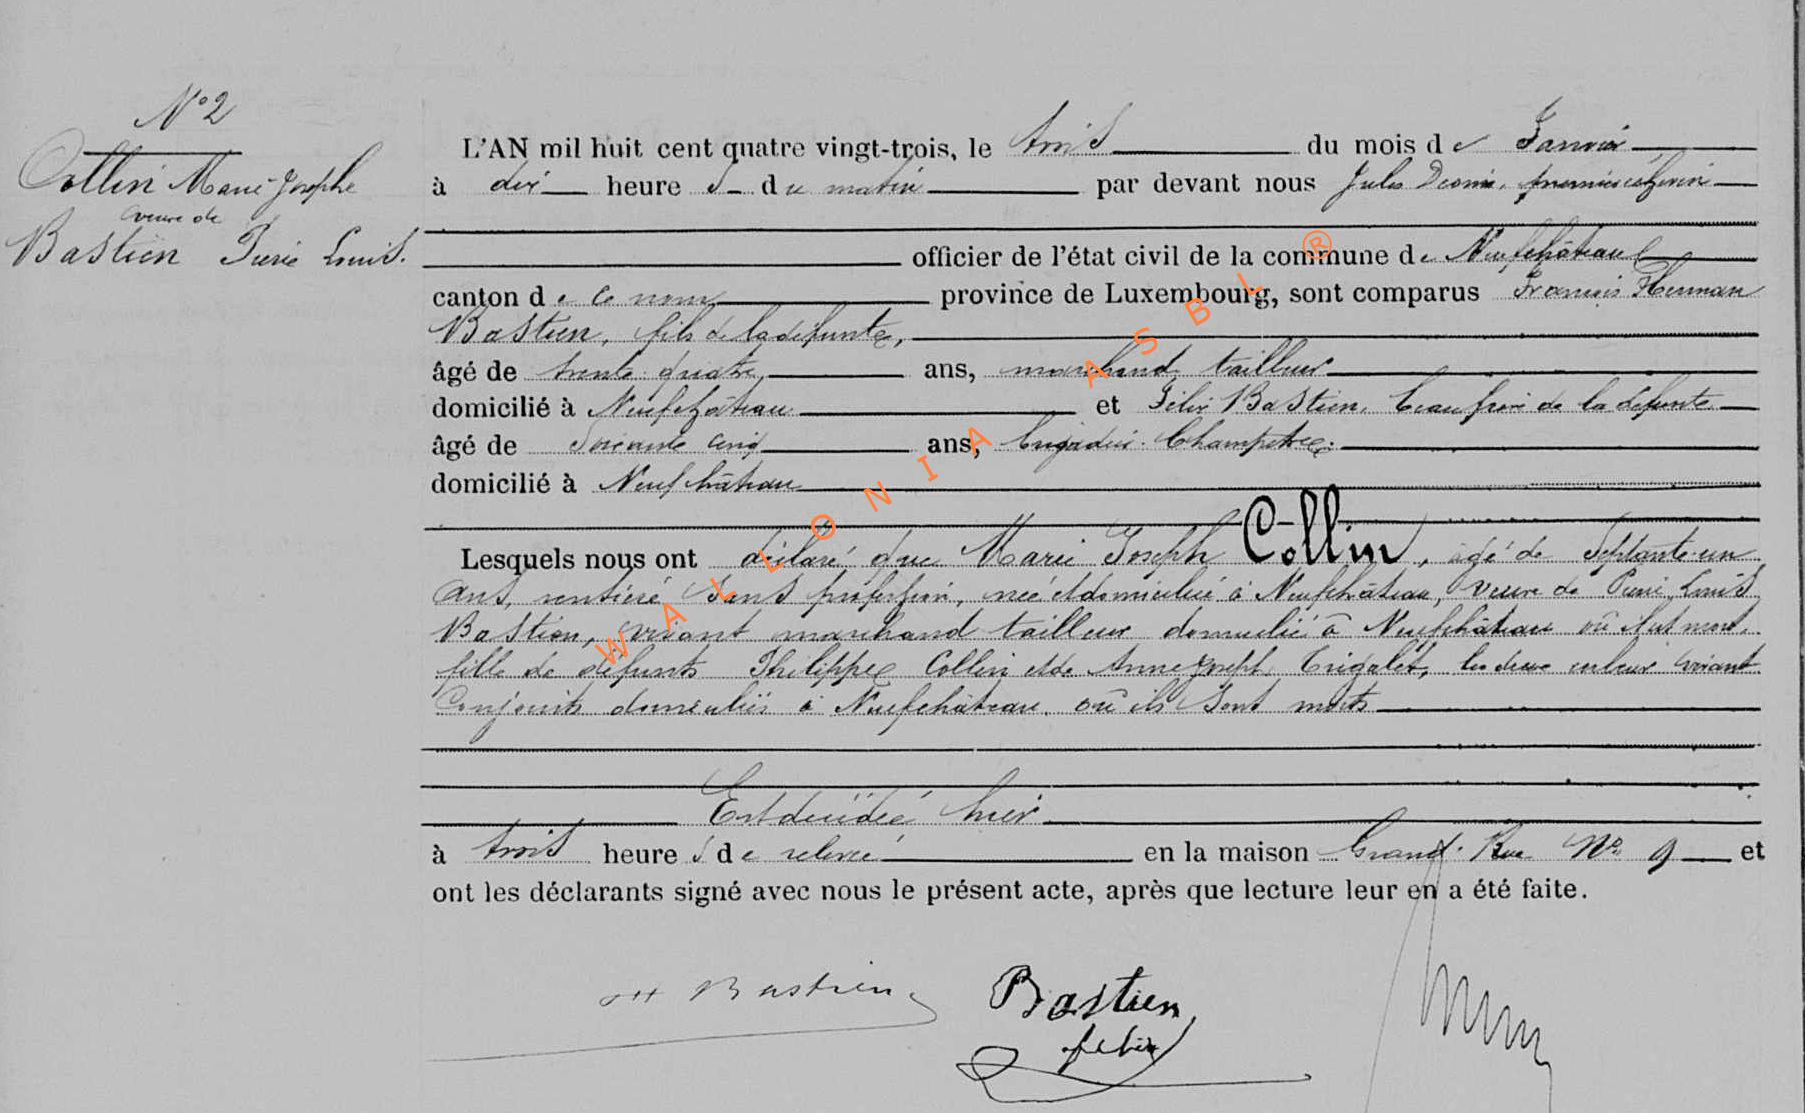 N° 2
Collin Marie-Josephe
veuve de
Bastien Pierre Louis.
L'AN mil huit cent quatre vingt-trois, le trois du mois de Janvier
à dix heures du matin par devant nous Jules premier échevin
officier de l'état civil de la commune de Neufchâteau
canton de ce nom province de Luxembourg, sont comparus François Herman
Bastien, fils de la défunte,
âgé de trente quatre ans, marchand tailleur
domicilié à Neufchâteau et Félix Bastien, beau frère de la défunte
âgé de soixante cinq ans, brigadier champêtre
domicilié à Neufchâteau
Lesquels nous ont déclaré que Marie Joseph Collin, âgée de septante-un
ans, rentière sans profession, née et domiciliée à Neufchâteau, veuve de Pierre Louis
Bastien, vivant marchand tailleur domicilié à Neufchâteau où il est mort,
fille de défunts Philippe Collin et de Anne Joseph Trigalet, les deux vivant
conjoints domiciliés à Neufchâteau où ils sont morts
Est décédée hier
à trois heures de relevée en la maison Grand-Rue N° 9 et
ont les déclarants signé avec nous le présent acte, après que lecture leur en a été faite.
H Bastien Bastien
felix
WALLONIA ASBL ®